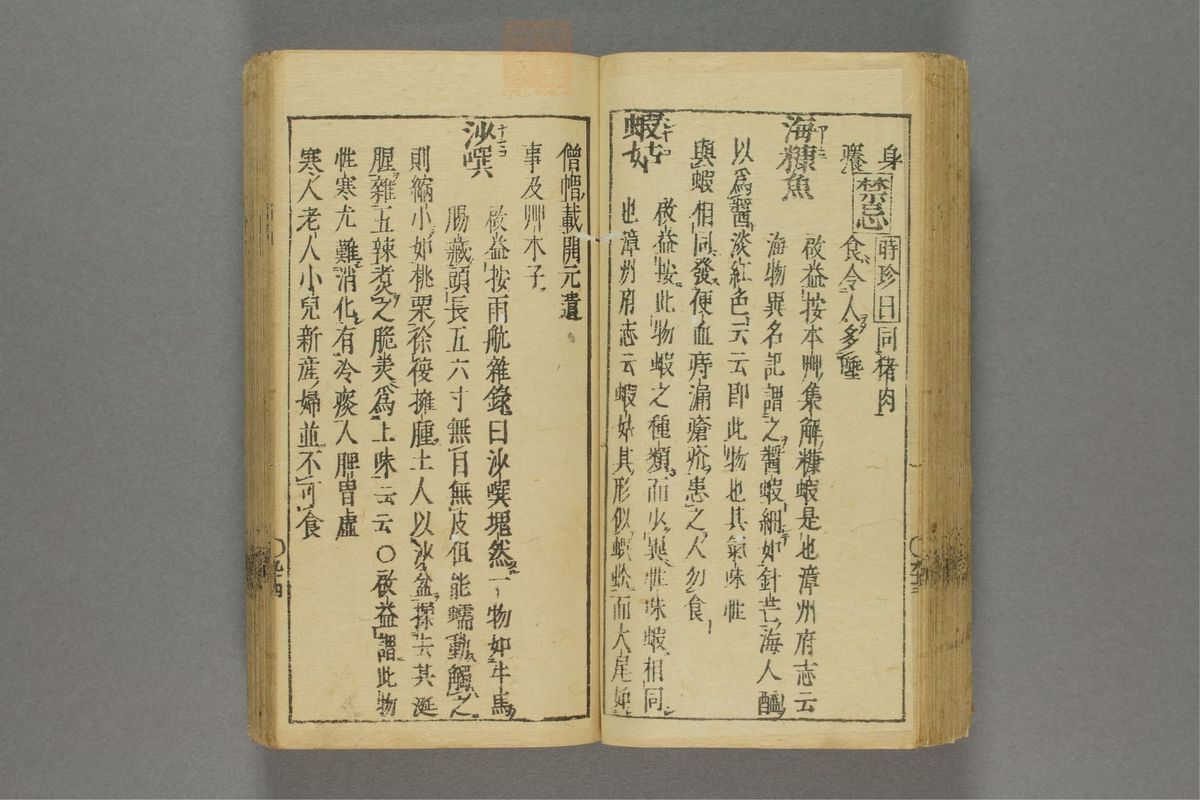 身
癢 禁忌 時珍曰同猪肉
食令人多唾
海糠魚
啟益按本艸集解糠蝦是也漳州府志云
海物異名記謂之醬蝦細如針芒海人醢
以為醬淡紅色云云即此物也其氣味性
與蝦相同發便血痔漏瘡疥患之人勿食
蝦姑
啟益按此物蝦之種類而少異性味蝦相同
也漳州府志云蝦姑其形似蝦蚣而大尾如
僧帽載開元遺
事及艸木子
沙噀
啟益按雨航雜錄曰沙噀塊然一物如牛馬
腸藏頭長五六寸無目無皮但能蠕動觸之
則縮小如桃栗徐復擁腫土人以沙盆揉去其涎
腥雜五辣煮之脆美為上味云云○啟益謂此物
性寒尤難消化有冷痰人脾胃虛
寒人老人小兒新産婦並不可食